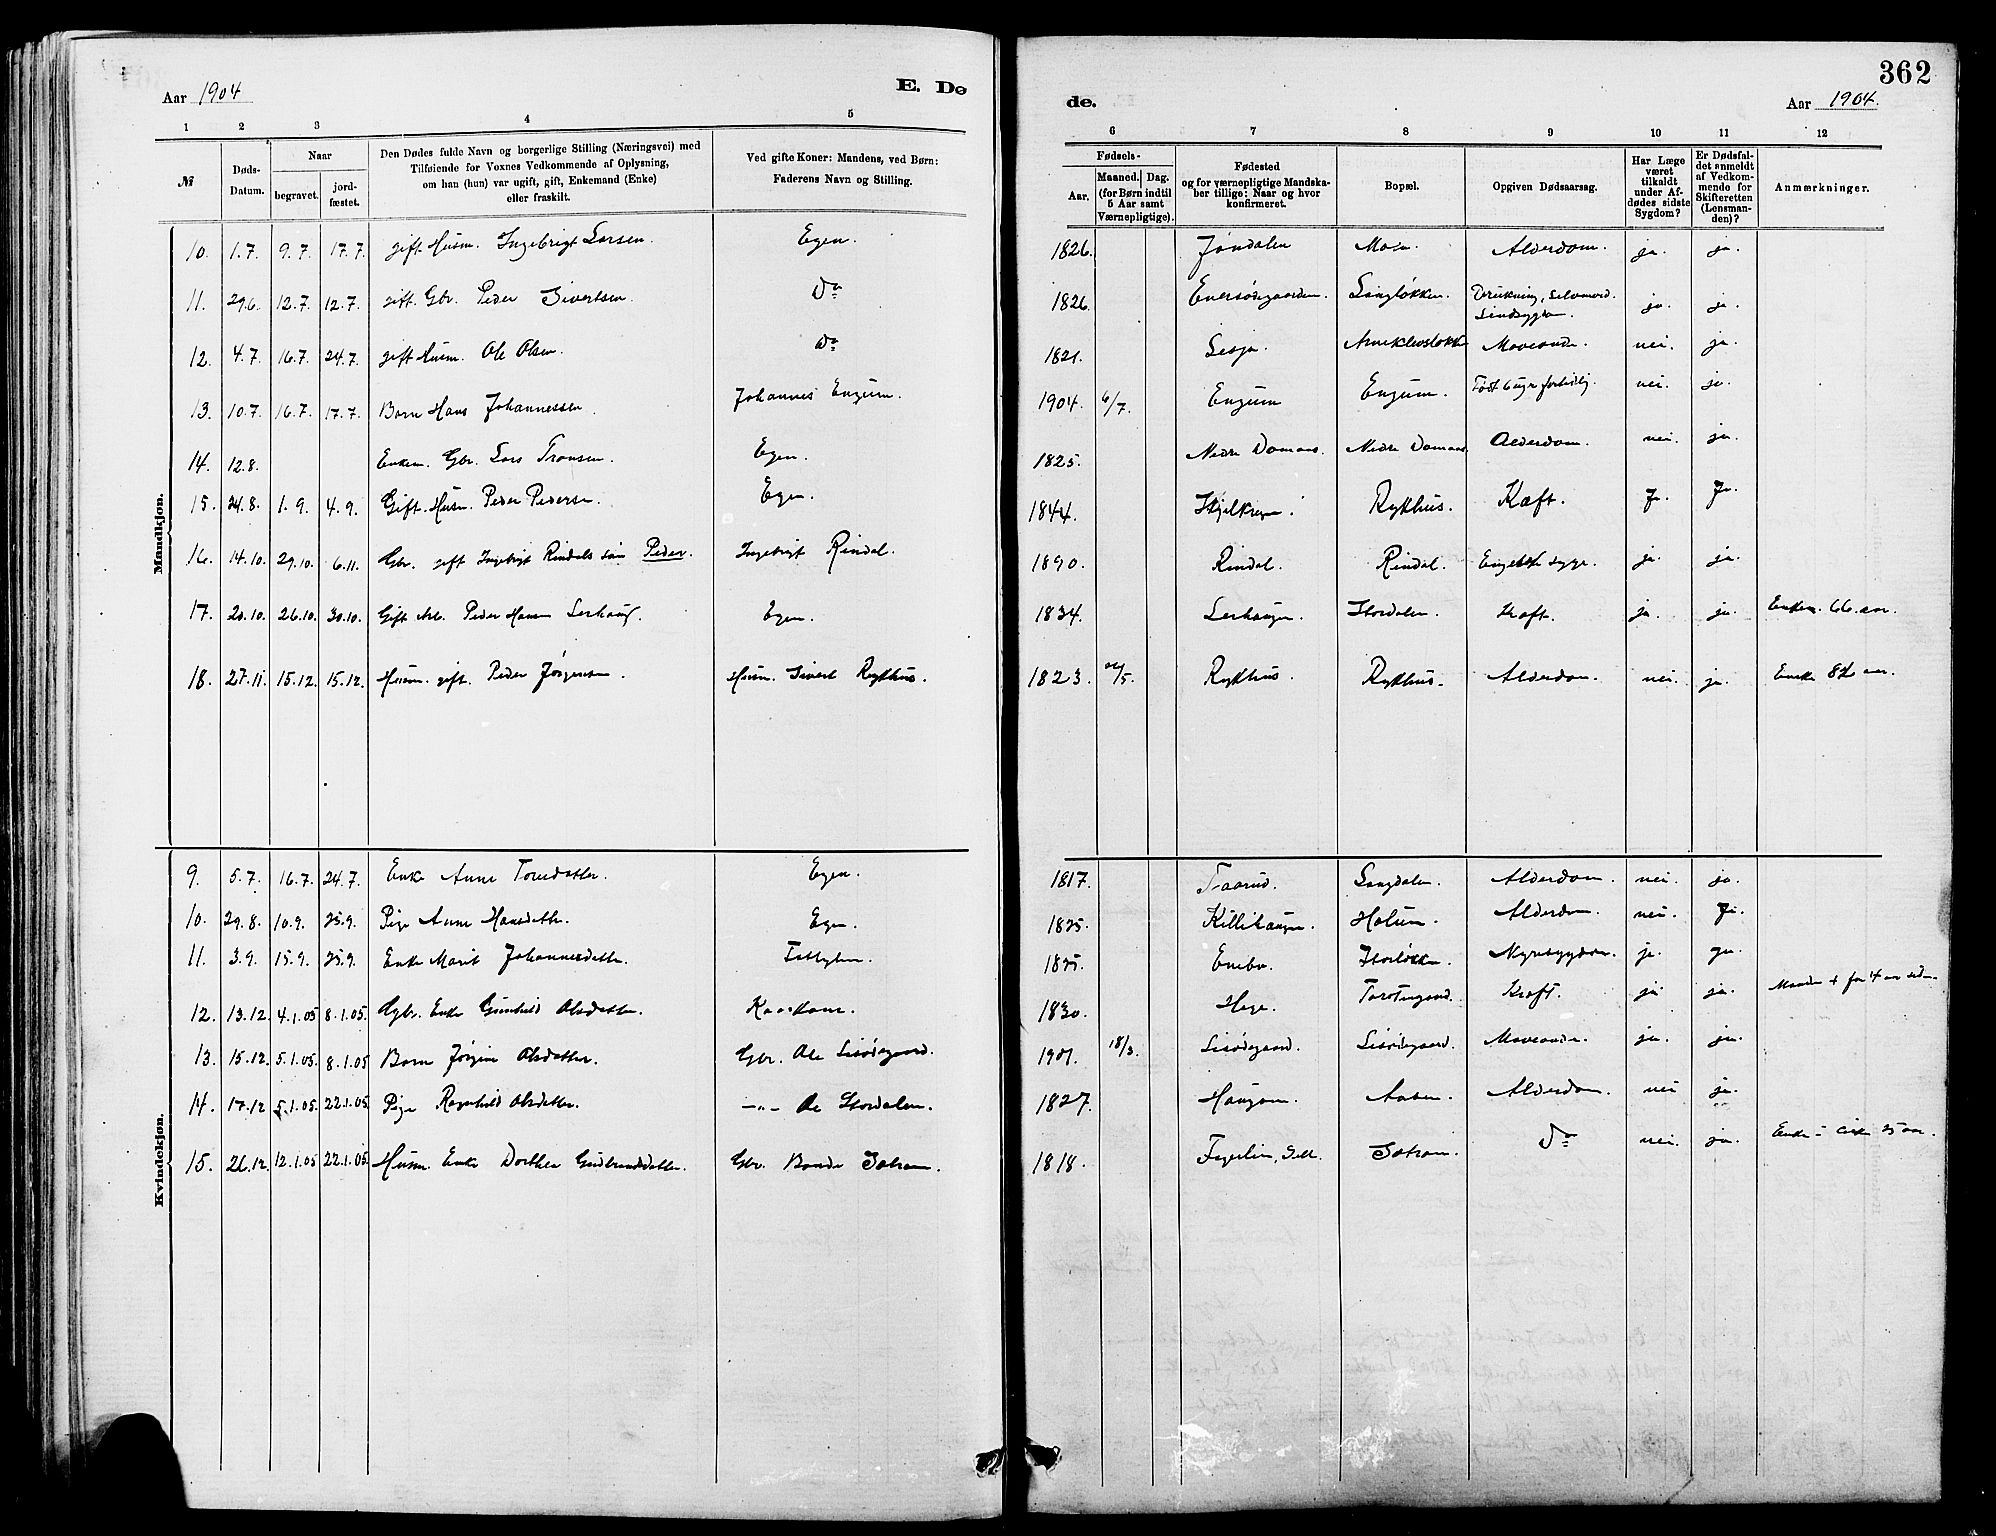 Aar 1904
E. Dø
1 2 3 4 5
№
Døds-
Datum.
Naar
begravet.
jord-
fæstet.
Den Dødes fulde Navn og borgerlige Stilling (Næringsvei) med
Tilføiende for Voxnes Vedkommende af Oplysning,
om han (hun) var ugift, gift, Enkemand (Enke)
eller fraskilt.
Ved gifte Koner: Mandens, ved Børn:
Faderens Navn og Stilling.
Mandkjøn.
10. 1.7. 9.7. 17.7. gift Husm. Ingebrigt Larsen. Egen.
11. 29.6. 12.7. 12.7. gift. Gbr. Peder Sivertsen Do
12. 4.7. 16.7. 24.7. gift Husm. Ole Olsen. Do
13. 10.7. 16.7. 17.7. Barn Hans Johannessen Johannes Engum.
14. 12.8. Enkem. Gbr. Lars Tronsen. Egen.
15. 24.8. 1.9. 4.9. Gift. Husm. Peder Pedersen. Egen.
16. 14.10. 29.10. 6.11. Gbr. gift Ingebrigt Rindals søn Peder. Ingebrigt Rindal.
17. 20.10. 26.10. 30.10. Gift Arb. Peder Hansen Lerhaug. Egen.
18. 27.11. 15.12. 15.12. Husm. gift. Peder Jørgensen Husm. Sivert Rykhus.
Kvindekjøn.
9. 5.7. 16.7. 24.7. Enke Anne Toresdatter. Egen.
10. 29.8. 10.9. 25.9. Pige Anne Hansdatter. Egen.
11. 3.9. 15.9. 25.9. Enke Marit Johannesdatter.
12. 13.12. 4.1.05. 8.1.05. Gbr. Enke Gunhild Olsdatter.
13. 15.12. 5.1.05. 8.1.05 Barn Jørgine Olsdatter. Gbr. Ole Lisødegaard.
14. 17.12 5.1.05. 22.1.05. Pige Ragnhild Olsdatter. —"— Ole Stordalen.
15. 26.12. 12.1.05 22.1.05. Husm. Enke Dorthea Gudbrandsdatter. Gbr.
362
de.
Aar 1904.
6 7 8 9 10 11 12
Fødsels-
Aar.
Maaned. Dag.
(for Børn indtil
5 Aar samt
Værnepligtige).
Fødested
og for værnepligtige Mandska-
ber tillige: Naar og hvor
konfirmeret.
Bopæl.
Opgiven Dødsaarsag.
Har Læge
været
tilkaldt
under Af-
dødes sidste
Sygdom?
Er Dødsfal-
det anmeldt
af Vedkom-
mende for
Skifteretten
(Lensman-
den)?
Anmærkninger.
1826. Jøndalen Moen Alderdom. ja. ja.
1826. Enersødegaarden. Langløkken. Drukning, Selvmord. ja. ja.
Sindssygdom.
1821. Lesja. Mavesaade. nei. ja.
1904. 6/7. Engum Engum. Født 6 uger fortidlig. nei. ja.
1825. Nedre Domaas. Nedre Domaas. Alderdom. nei. ja.
1844. Rykhus. Kræft. J. Ja.
1890. Rindal. Rindal. Engelsk syge. ja. ja.
1834. Lerhaugen. Stordalen. Kræft. ja. ja. Enkem. 66 aar.
1823. Rykhus. Rykhus. Alderdom. nei. ja. Enke
1817. Taarud. Langdalen. Alderdom. nei. ja.
1825. Killihaugen Holum. Alderdom. nei. Ja.
Enebo. Storløkken. Nyresygdom. ja. ja.
1830. Hage. Kræft. ja. ja. Manden + for 4 aar siden.
1901. 18/3. Lisødegaard. Lisødegaard. Mavesaade. ja. ja.
1827. Haugom. Aasen. Alderdom. nei ja.
1818. Do nei. ja. Enke i cirka 25 aar.